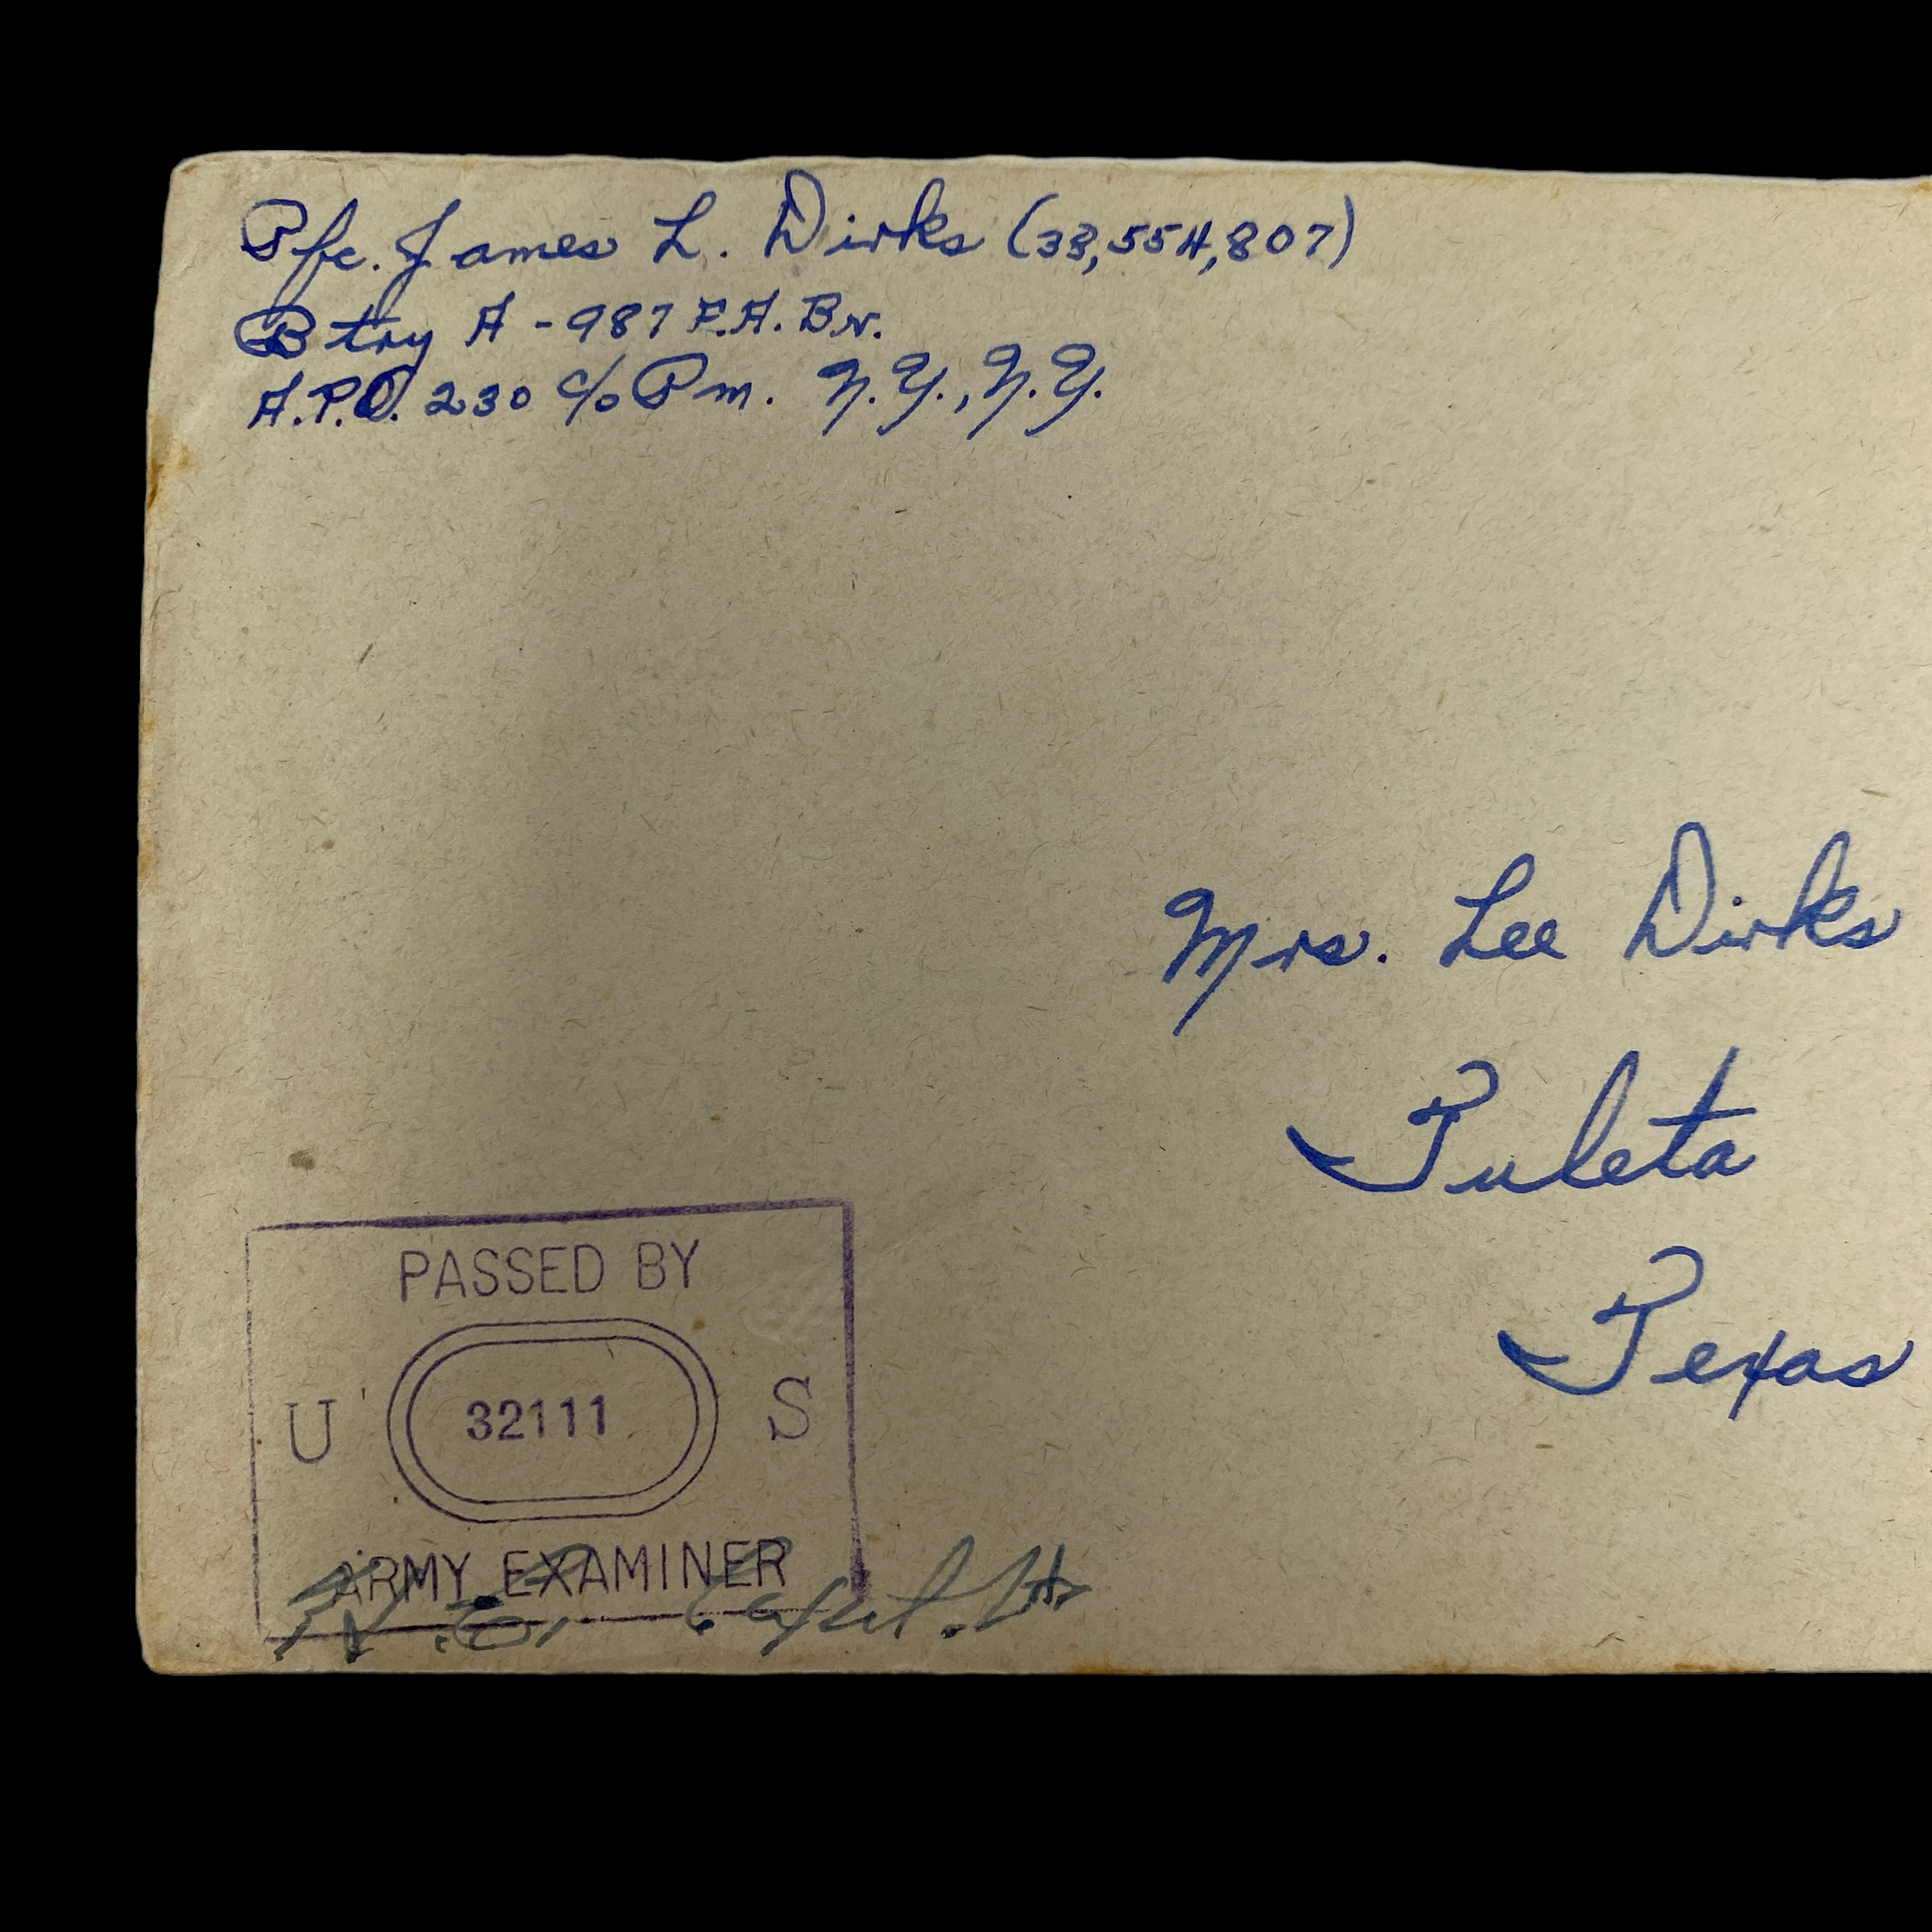 Pfc. James L. Dirks (33,554,807)
Btry A - 987 F.A. Bn.
A.P.O. 230 c/o Pm. N.Y., N.Y.
Mrs. Lee Dirks
Tuleta
Texas
PASSED BY
U 32111 S
ARMY EXAMINER